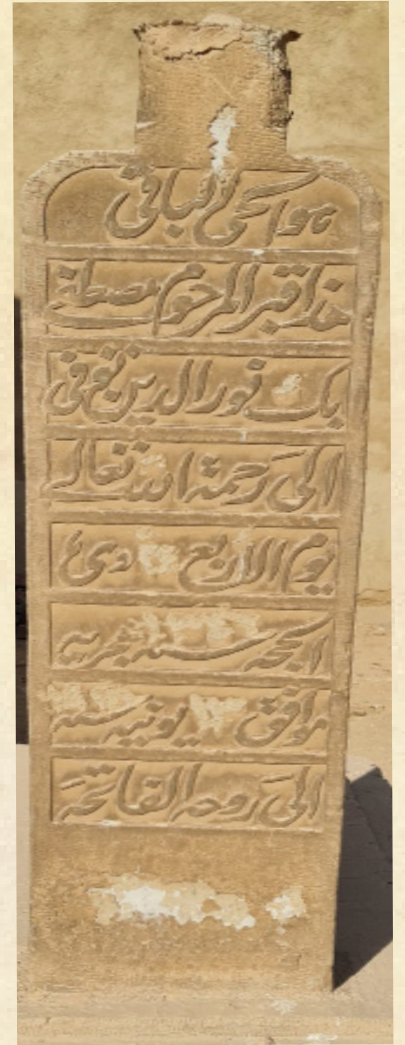 هو الحي الباقي
هذا قبر المرحوم مصطفى
بك نور الدين توفي
الى رحمة الله تعالى
يوم الاربع دي
الحجة سنة هجريه
موافق يونيه سنة
الى روحه الفاتحة